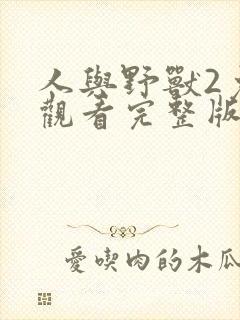 人與野獸2
觀看完整版
愛喫肉的木瓜